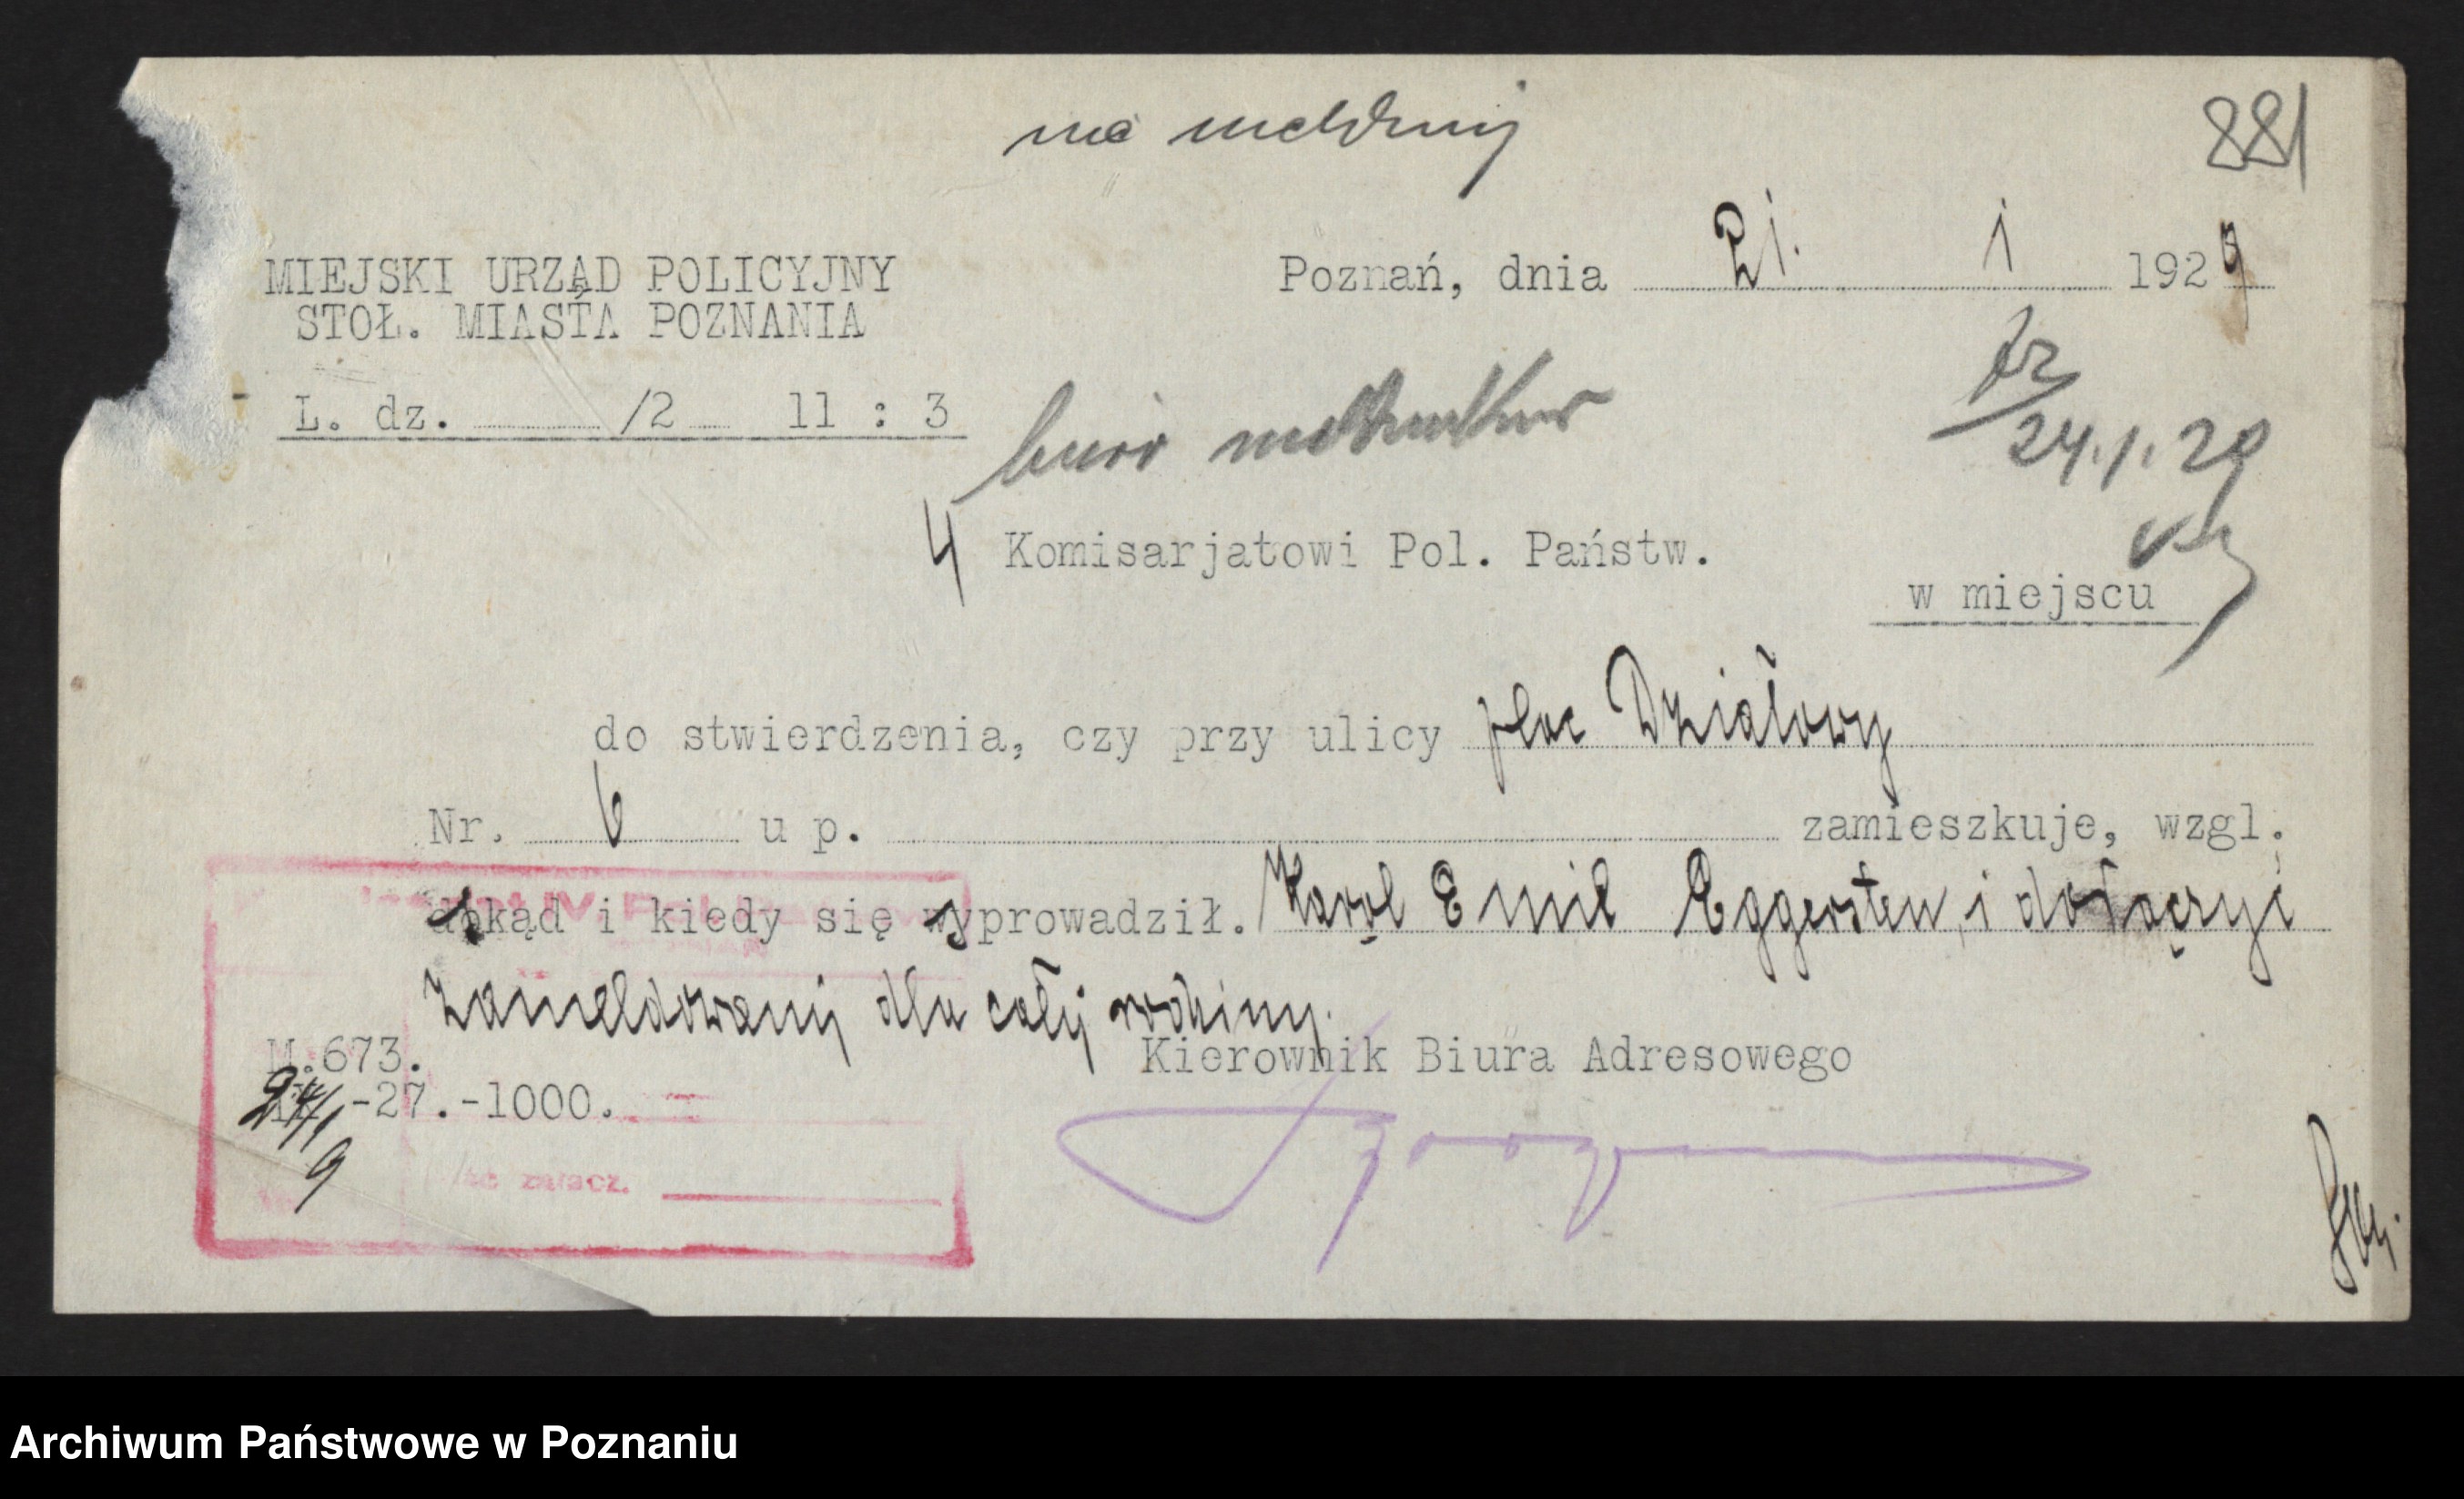 881
MIEJSKI URZĄD POLICYJNY
STOŁ. MIASTA POZNANIA
Poznań, dnia 21. 1 1929
L. dz. /2 11 : 3
biuro
24.1.29
4 Komisarjatowi Pol. Państw.
w miejscu
do stwierdzenia, czy przy ulicy plac Działowy
Nr. 6 u p. zamieszkuje, wzgl.
skąd i kiedy się wyprowadził. Karol Emil Eggersten, i dołączyć
zameldowanij dla całej rodziny.
M.673.
-27.-1000.
24/1
9
Kierownik Biura Adresowego
załącz.
Archiwum Państwowe w Poznaniu